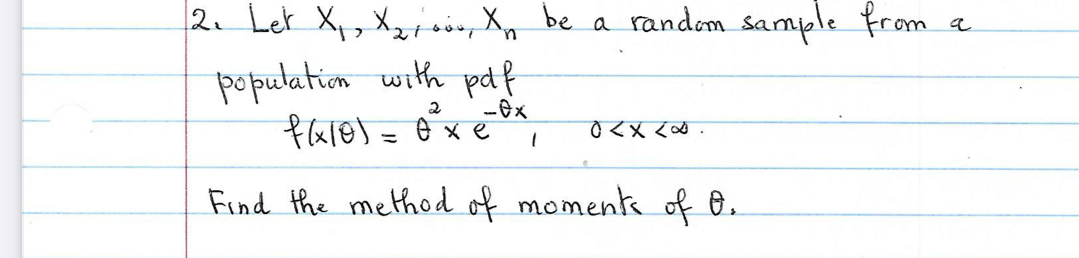 2. Let X₁, X₂, ..., Xₙ be a random sample from a
population with pdf
f(x|θ) = θ² x e^{-θx}, 0 < x < ∞.
Find the method of moments of θ.